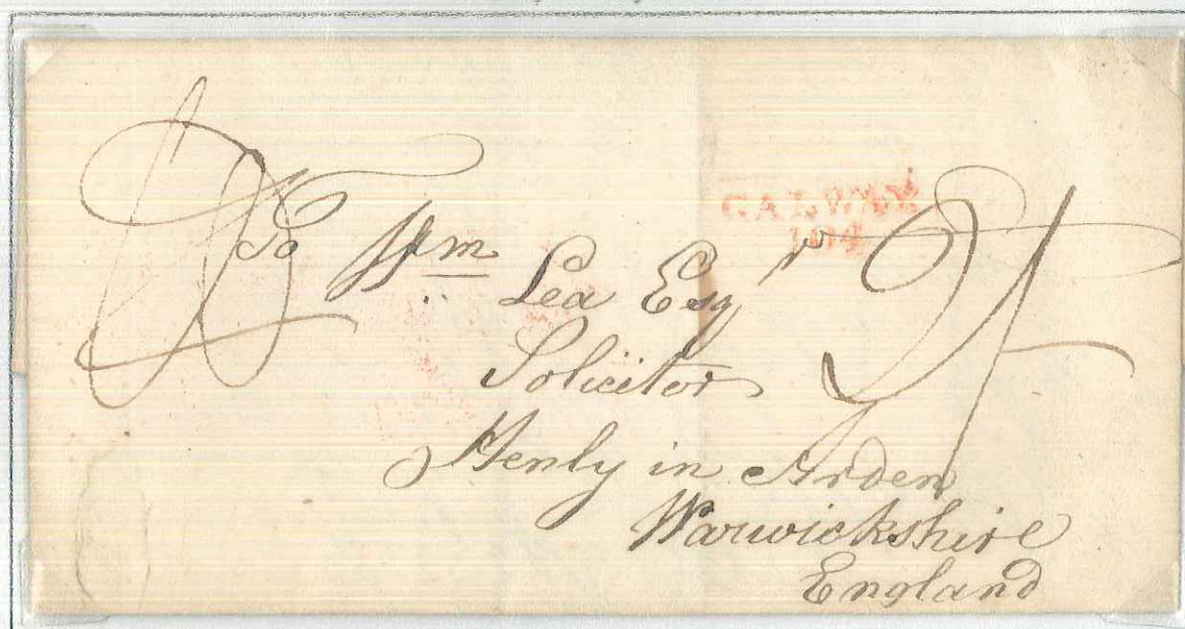 GALWAY
104
To Wm
Lea Esqr
Solicitor
Henly in Arden
Warwickshire
England